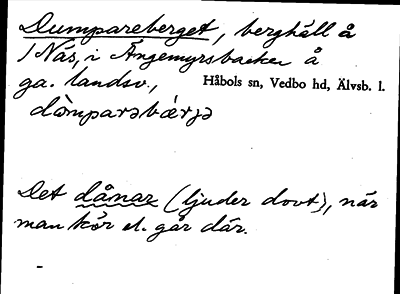 Dumpareberget, berghäll å
1 Näs, i Ängemyrsbacken å
ga. landsv., Håbols sn, Vedbo hd, Älvsb. l.
dòmparəbærjə
Det dånar (ljuder dovt), när
man kör el. går där.